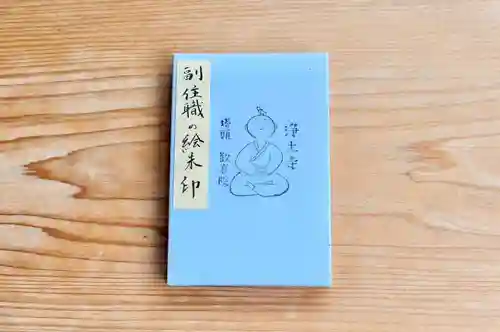 副住職の絵朱印
浄土宗
塔頭 歓喜院